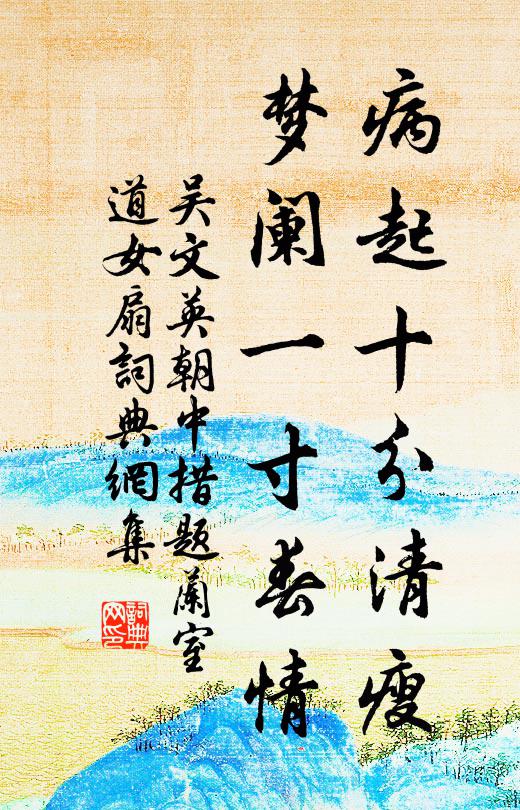 病起十分清瘦
梦阑一寸春情
吴文英朝中措题兰室
道女扇詞典網集
詞典网印